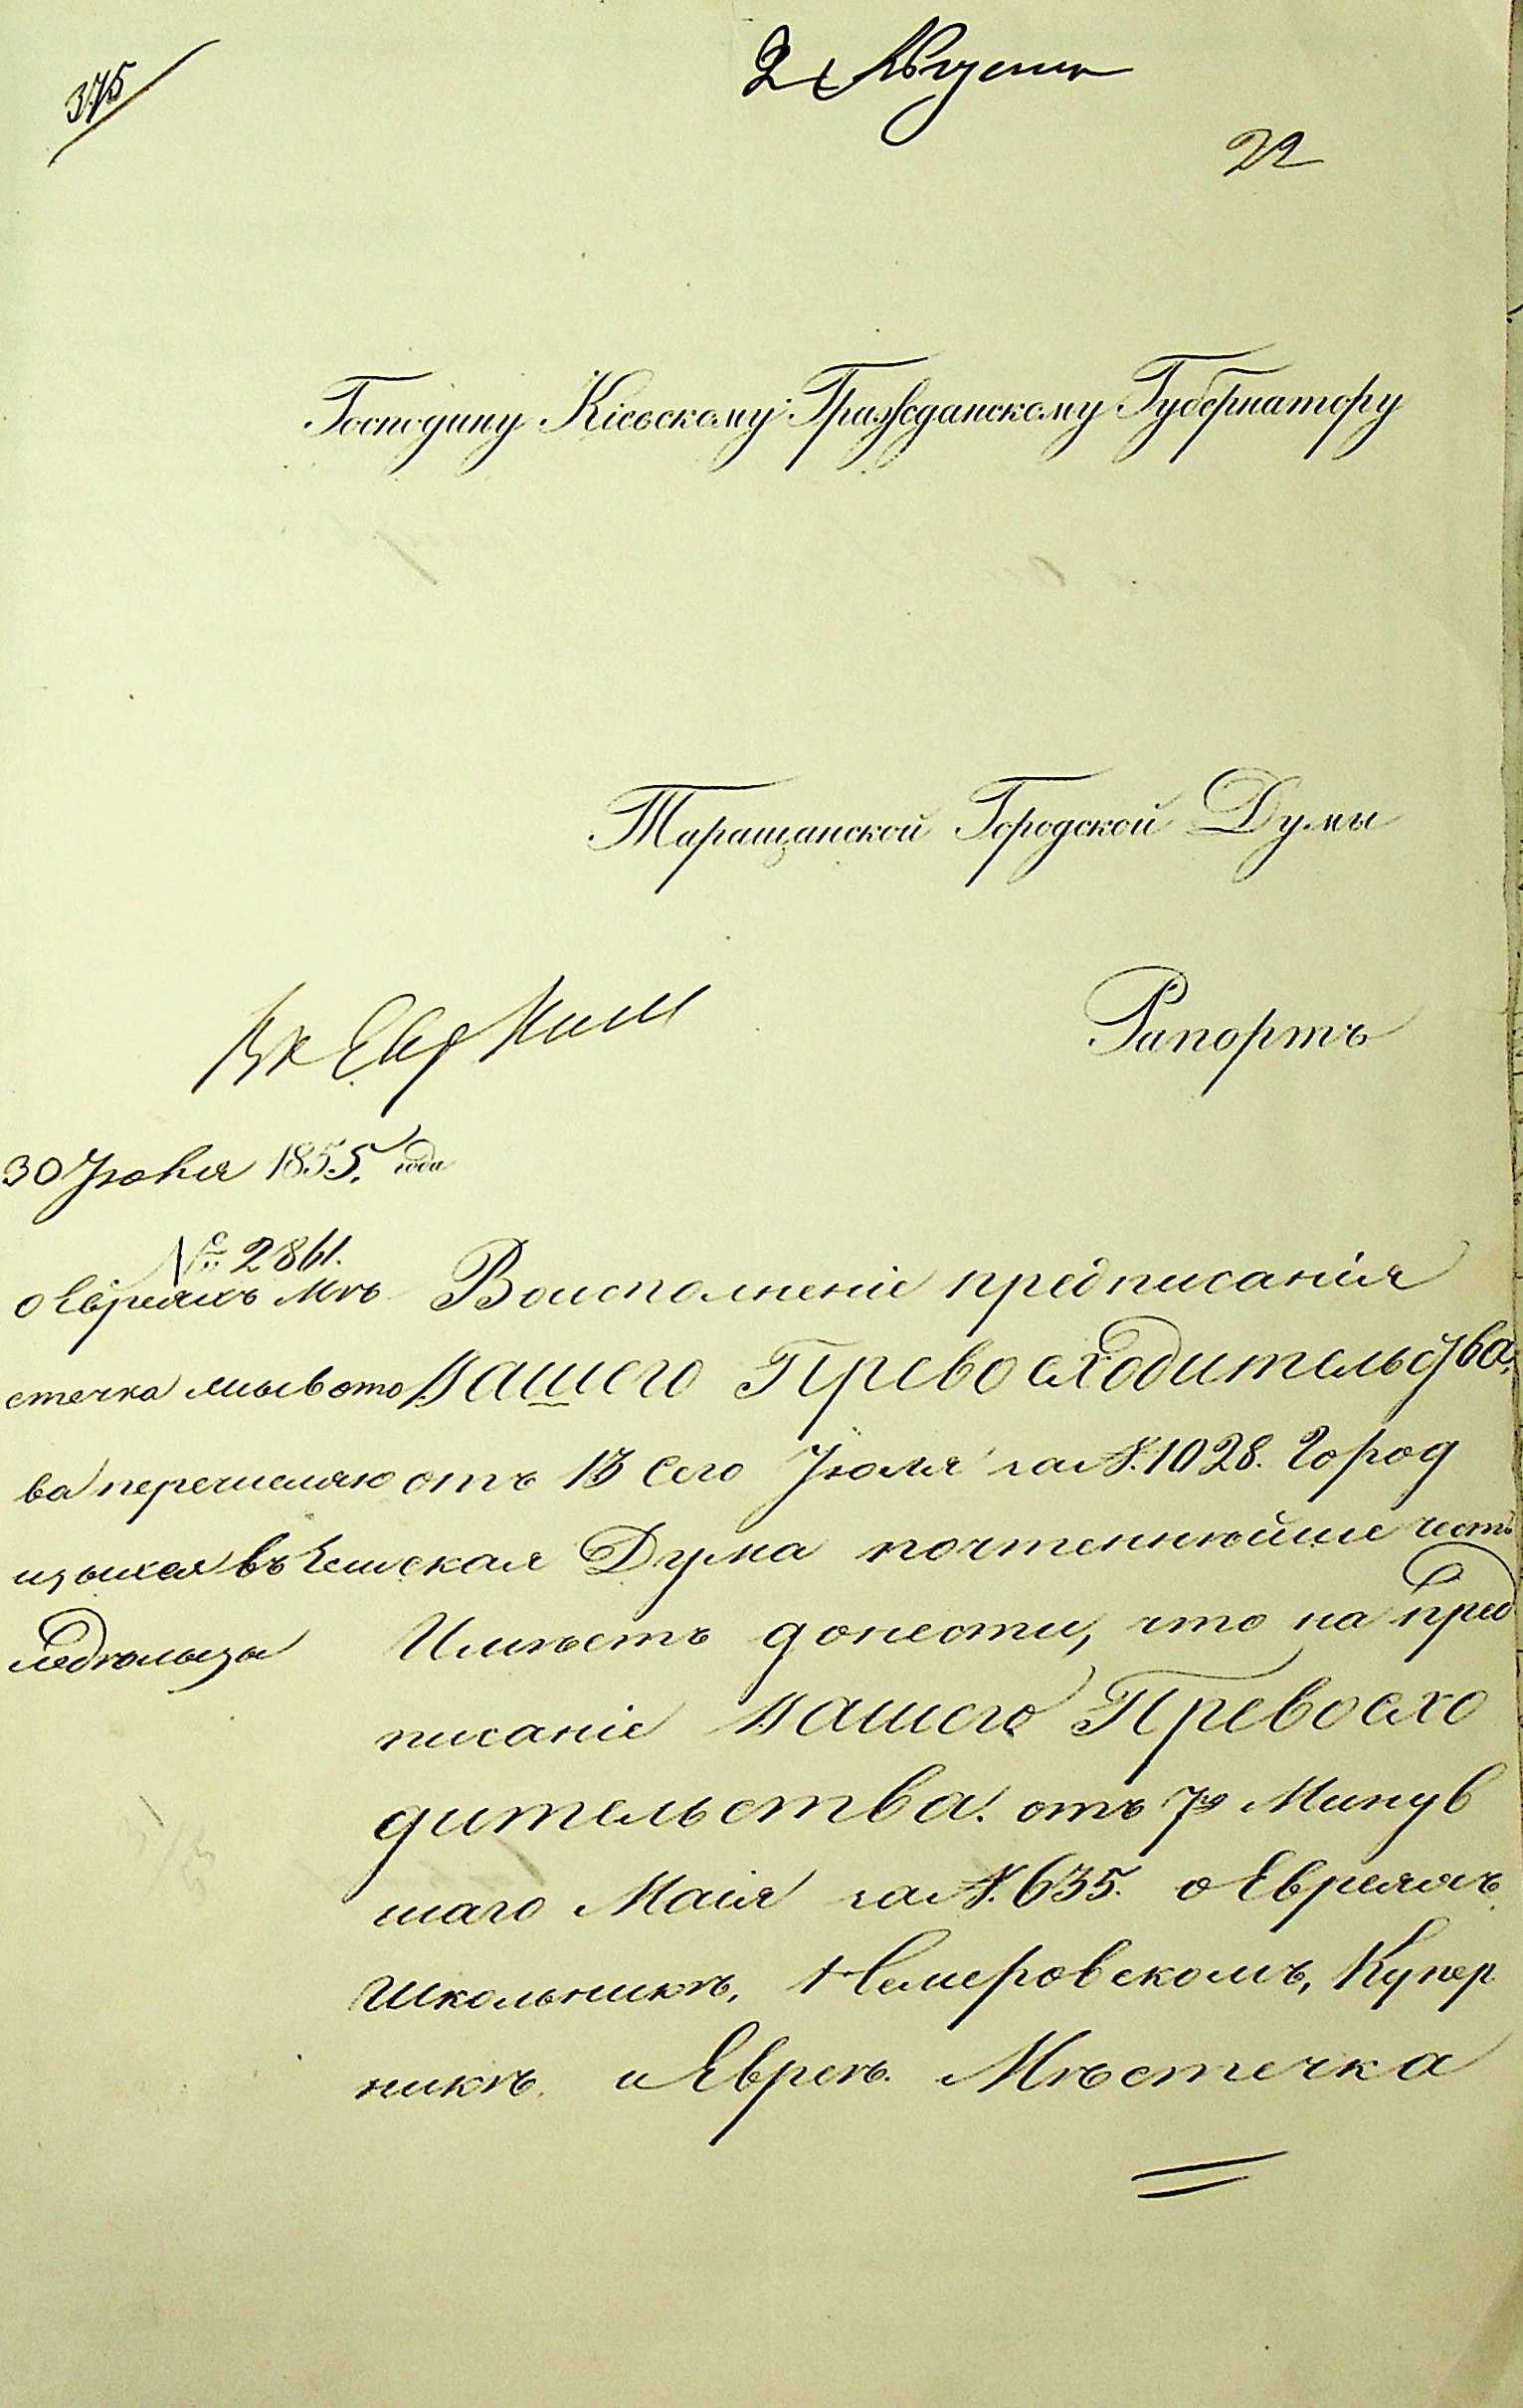 375
2 Августа
22
Господину Кіевскому Гражданскому Губернатору
Таращанской Городской Думы
Рапортъ
30 Июля 1855. года
№ 2861.
о Евреяхъ Мѣ
стечка
ва перечисляю
щихся въ
Воисполненіе предписанія
Вашего Превосходительства,
отъ 13 сего Іюля за №. 1028. Город
ская Дума почтеннѣйше честь
Имѣетъ донести, что на пред
писаніе Вашего Превосхо
дительства. отъ 7го Минув
шаго Маія за №. 635. о Евреяхъ
Школьникѣ, Немеровскомъ, Купер
никѣ. и Евреѣ. Мѣстечка